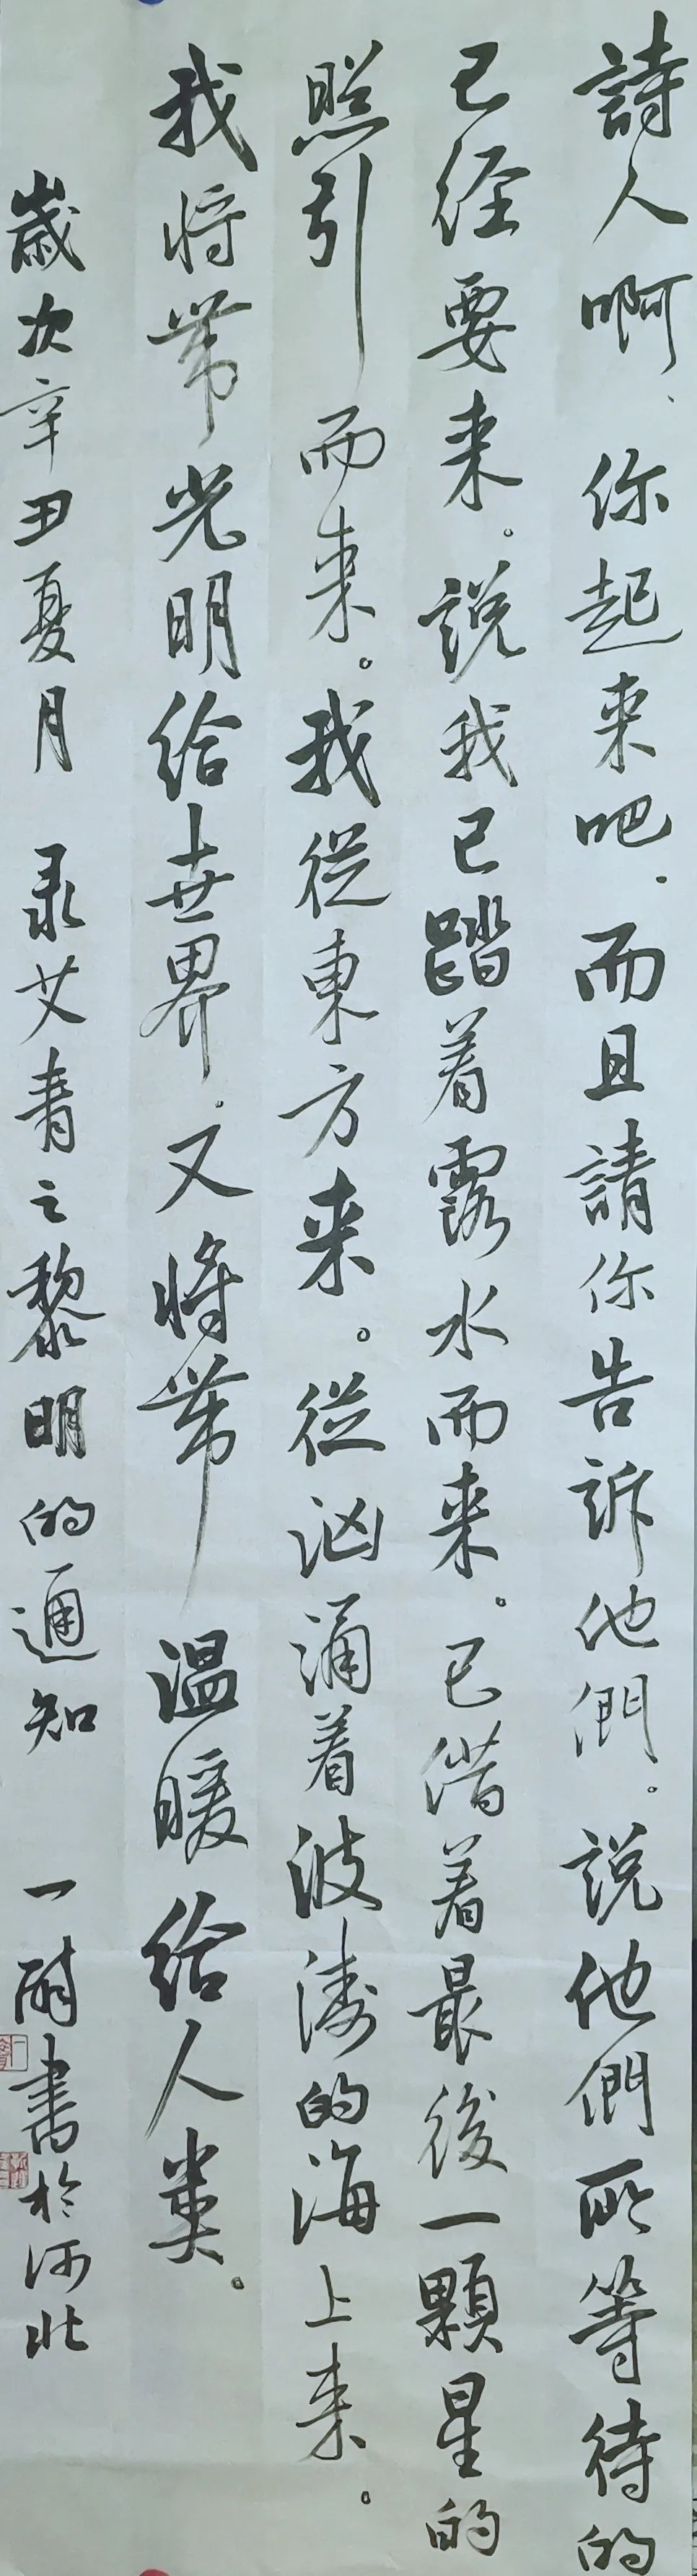 詩人啊、你起来吧．而且請你告訴他們。説他們所等待的
已经要来。説我已踏着露水而来。已偕着最後一顆星的
照引而来。我從東方来。從汹涌着波濤的海上来。
我将带光明给世界。又將带温暖给人类。
嵗次辛丑夏月 录艾青之黎明的通知 一耐書於河北